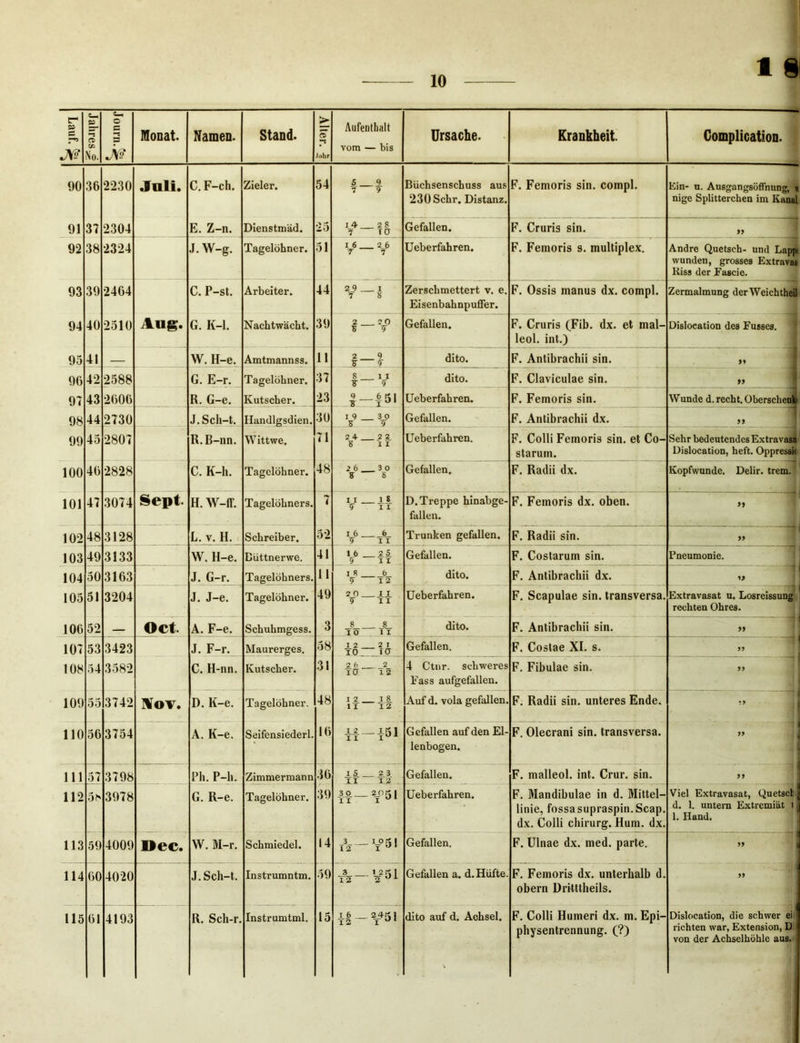 10
1 8
Lauf. № | Jahres No. | Journ. № | Monat. | Namen. | Stand. | Alter. Jahr | Aufenthalt vom — bis | Ursache. | Krankheit. | Complication.
90 | 36 | 2230 | Juli. | C. F-ch. | Zieler. | 54 | 5/7 — 9/9 | Büchsenschuss aus 230 Schr. Distanz. | F. Femoris sin. compl. | Ein- u. Ausgangsöffnung, nige Splitterchen im Kanal
91 | 37 | 2304 | | E. Z-n. | Dienstmäd. | 25 | 14/7 — 28/10 | Gefallen. | F. Cruris sin. | „
92 | 38 | 2324 | | J. W-g. | Tagelöhner. | 51 | 16/7 — 26/7 | Ueberfahren. | F. Femoris s. multiplex. | Andre Quetsch- und Lapp wunden, grosses Extravas Riss der Fascie.
93 | 39 | 2464 | | C. P-st. | Arbeiter. | 44 | 29/7 — 1/8 | Zerschmettert v. e. Eisenbahnpuffer. | F. Ossis manus dx. compl. | Zermalmung der Weichtheil
94 | 40 | 2510 | Aug. | G. K-l. | Nachtwächt. | 39 | 2/8 — 20/9 | Gefallen. | F. Cruris (Fib. dx. et malleol. int.) | Dislocation des Fusses.
95 | 41 | — | | W. H-e. | Amtmannss. | 11 | 2/8 — 9/9 | dito. | F. Antibrachii sin. | „
96 | 42 | 2588 | | G. E-r. | Tagelöhner. | 37 | 8/8 — 11/9 | dito. | F. Claviculae sin. | „
97 | 43 | 2606 | | R. G-e. | Kutscher. | 23 | 9/8 — 6/8 51 | Ueberfahren. | F. Femoris sin. | Wunde d. recht. Oberschenk
98 | 44 | 2730 | | J. Sch-t. | Handlgsdien. | 30 | 19/8 — 30/9 | Gefallen. | F. Antibrachii dx. | „
99 | 45 | 2807 | | R. B-nn. | Wittwe. | 71 | 24/8 — 22/11 | Ueberfahren. | F. Colli Femoris sin. et Costarum. | Sehr bedeutendes Extravasa Dislocation, heft. Oppressi
100 | 46 | 2828 | | C. K-h. | Tagelöhner. | 48 | 26/8 — 30/8 | Gefallen. | F. Radii dx. | Kopfwunde. Delir. trem.
101 | 47 | 3074 | Sept. | H. W-ff. | Tagelöhners. | 7 | 11/9 — 18/11 | D. Treppe hinabgefallen. | F. Femoris dx. oben. | „
102 | 48 | 3128 | | L. v. H. | Schreiber. | 52 | 16/9 — 6/11 | Trunken gefallen. | F. Radii sin. | „
103 | 49 | 3133 | | W. H-e. | Büttnerwe. | 41 | 16/9 — 25/11 | Gefallen. | F. Costarum sin. | Pneumonie.
104 | 50 | 3163 | | J. G-r. | Tagelöhners. | 11 | 18/9 — 6/12 | dito. | F. Antibrachii dx. | „
105 | 51 | 3204 | | J. J-e. | Tagelöhner. | 49 | 20/9 — 11/11 | Ueberfahren. | F. Scapulae sin. transversa. | Extravasat u. Losreissung rechten Ohres.
106 | 52 | — | Oct. | A. F-e. | Schuhmgess. | 3 | 8/10 — 8/11 | dito. | F. Antibrachii sin. | „
107 | 53 | 3423 | | J. F-r. | Maurerges. | 58 | 12/10 — 21/10 | Gefallen. | F. Costae XI. s. | „
108 | 54 | 3582 | | C. H-nn. | Kutscher. | 31 | 26/10 — 2/12 | 4 Ctnr. schweres Fass aufgefallen. | F. Fibulae sin. | „
109 | 55 | 3742 | Nov. | D. K-e. | Tagelöhner. | 48 | 12/11 — 18/12 | Auf d. vola gefallen. | F. Radii sin. unteres Ende. | „
110 | 56 | 3754 | | A. K-e. | Seifensiederl. | 16 | 12/11 — 1/1 51 | Gefallen auf den Ellenbogen. | F. Olecrani sin. transversa. | „
111 | 57 | 3798 | | Ph. P-h. | Zimmermann | 36 | 15/11 — 23/12 | Gefallen. | F. malleol. int. Crur. sin. | „
112 | 58 | 3978 | | G. R-e. | Tagelöhner. | 39 | 30/11 — 20/1 51 | Ueberfahren. | F. Mandibulae in d. Mittellinie, fossa supraspin. Scap. dx. Colli chirurg. Hum. dx. | Viel Extravasat, Quetsch d. l. untern Extremiät l. Hand.
113 | 59 | 4009 | Dec. | W. M-r. | Schmiedel. | 14 | 3/12 — 10/1 51 | Gefallen. | F. Ulnae dx. med. parte. | „
114 | 60 | 4020 | | J. Sch-t. | Instrumntm. | 59 | 3/12 — 12/2 51 | Gefallen a. d. Hüfte. | F. Femoris dx. unterhalb d. obern Dritttheils. | „
115 | 61 | 4193 | | R. Sch-r. | Instrumtml. | 15 | 16/12 — 24/1 51 | dito auf d. Achsel. | F. Colli Humeri dx. m. Epiphysentrennung. (?) | Dislocation, die schwer ei richten war, Extension, D von der Achselhöhle aus.